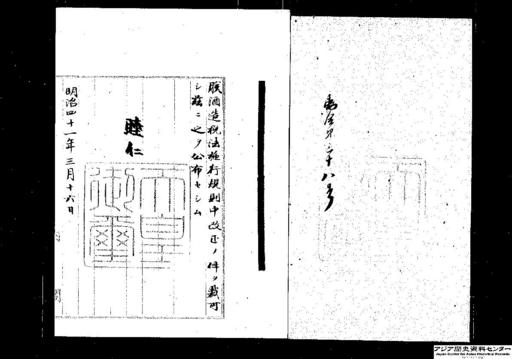 勅令第二十八号
朕酒造税法施行規則中改正ノ件ヲ裁可
シ茲ニ之ヲ公布セシム
睦仁
天皇御璽
明治四十一年三月十六日
アジア歴史資料センター
Japan Center for Asian Historical Records